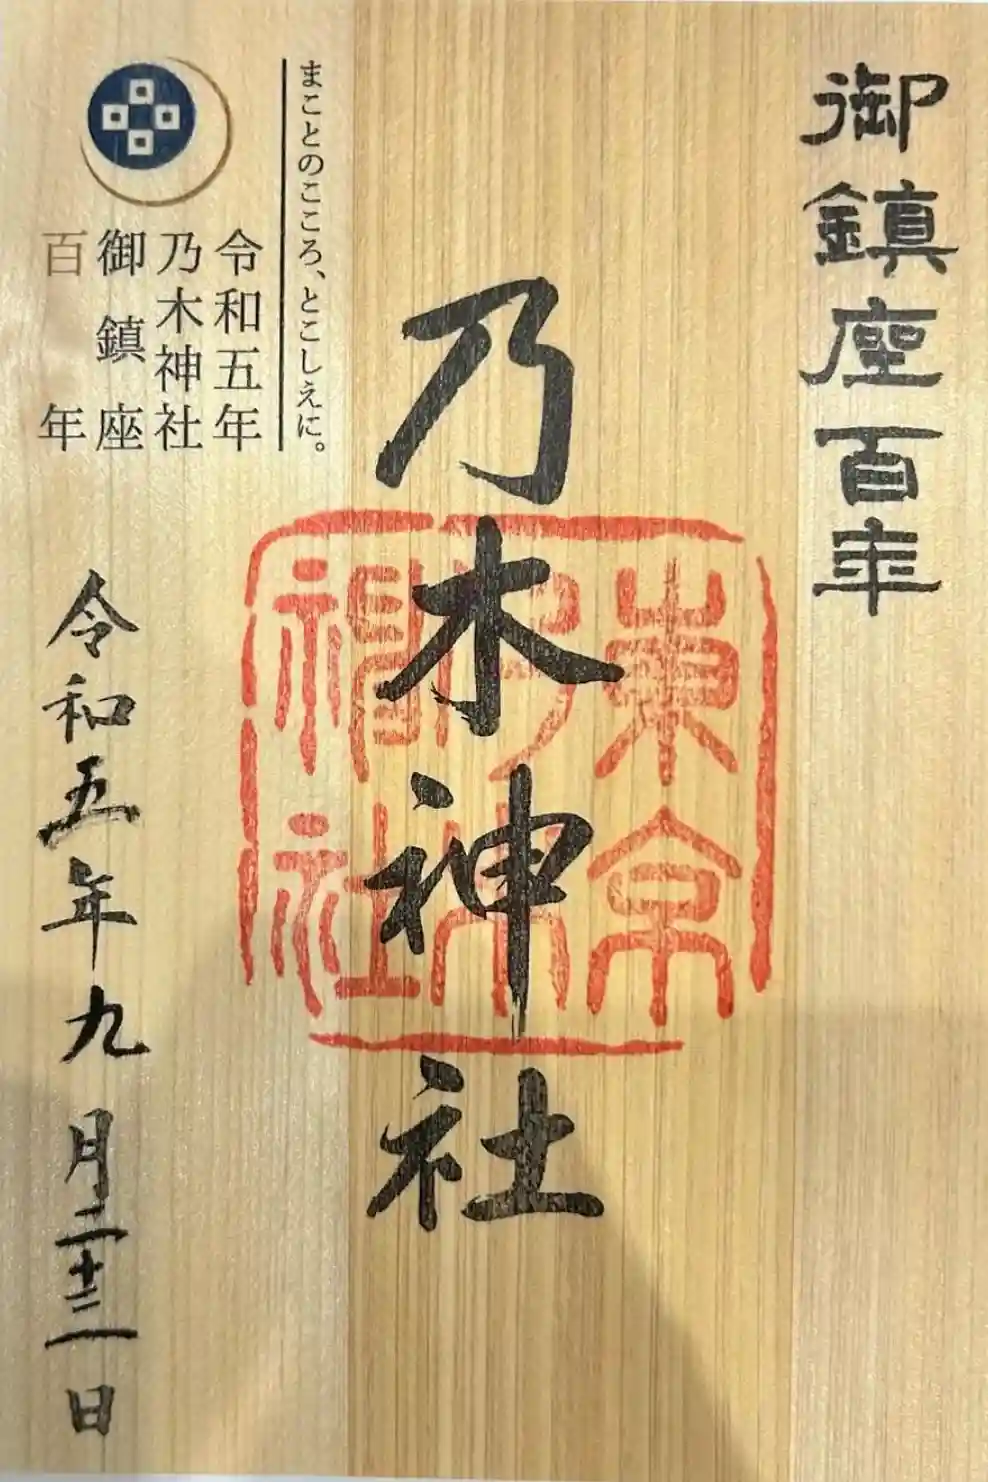 御鎮座百年
乃木神社
東京乃木神社
まことのこころ、とこしえに。
令和五年
乃木神社
御鎮座
百年
令和五年九月二十三日